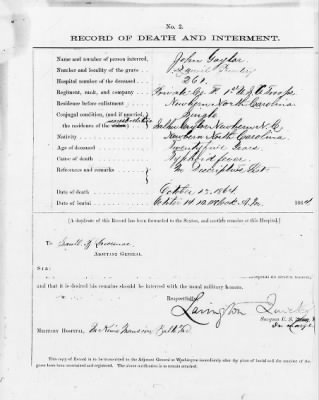 No. 2.
RECORD OF DEATH AND INTERMENT.
Name and number of person interred, John Taylor
Number and locality of the grave
Number of the deceased 261.
Regiment, rank, and company Private Co. F. 1st U.S.C. Troops
Residence before enlistment Newbern North Carolina
Conjugal condition, (and if married, Single
the residence of the Taylor Newbern N.C.
Nativity Newbern North Carolina
Age of the deceased Twenty five Years
Cause of death Typhoid fever
References and remarks No Descriptive List
Date of death October 13. 1864
Date of burial October 14 12 O'Clock A.M. 1864
[A duplicate of this Record has been forwarded to the Sexton, and another remains at this Hospital.]
To
ADJUTANT GENERAL
SIR:
and that it is desired his remains should be interred with the usual military honors.
Respectfully,
Lavington Quick
Surgeon U. S.
In Charge
MILITARY HOSPITAL,
This copy of Record is to be transmitted to the Adjutant General at Washington immediately after the place of burial and the number of the grave have been ascertained and registered.